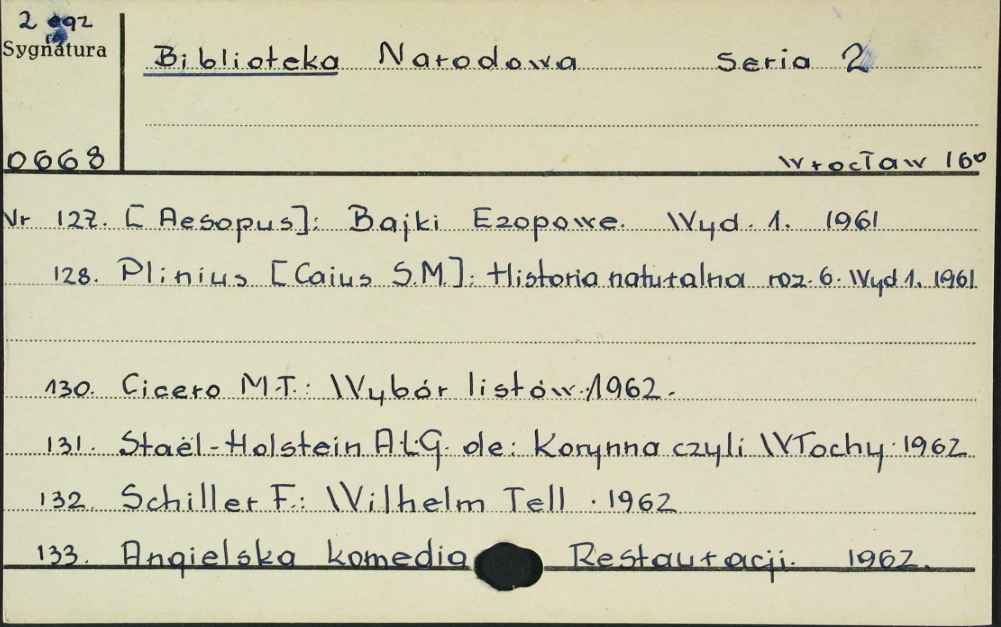 2 egz
Sygnatura
Biblioteka Narodowa Seria 2
0668
Wrocław 16°
Nr 127. [Aesopus]: Bajki Ezopowe. Wyd. 1. 1961
128. Plinius [Caius S.M.]: Historia naturalna roz. 6. Wyd 1. 1961
130. Cicero M.T.: Wybór listów. 1962.
131. Staël-Holstein A.L.G. de: Korynna czyli Włochy. 1962
132. Schiller F.: Wilhelm Tell. 1962
133. Angielska komedia Restauracji. 1962.